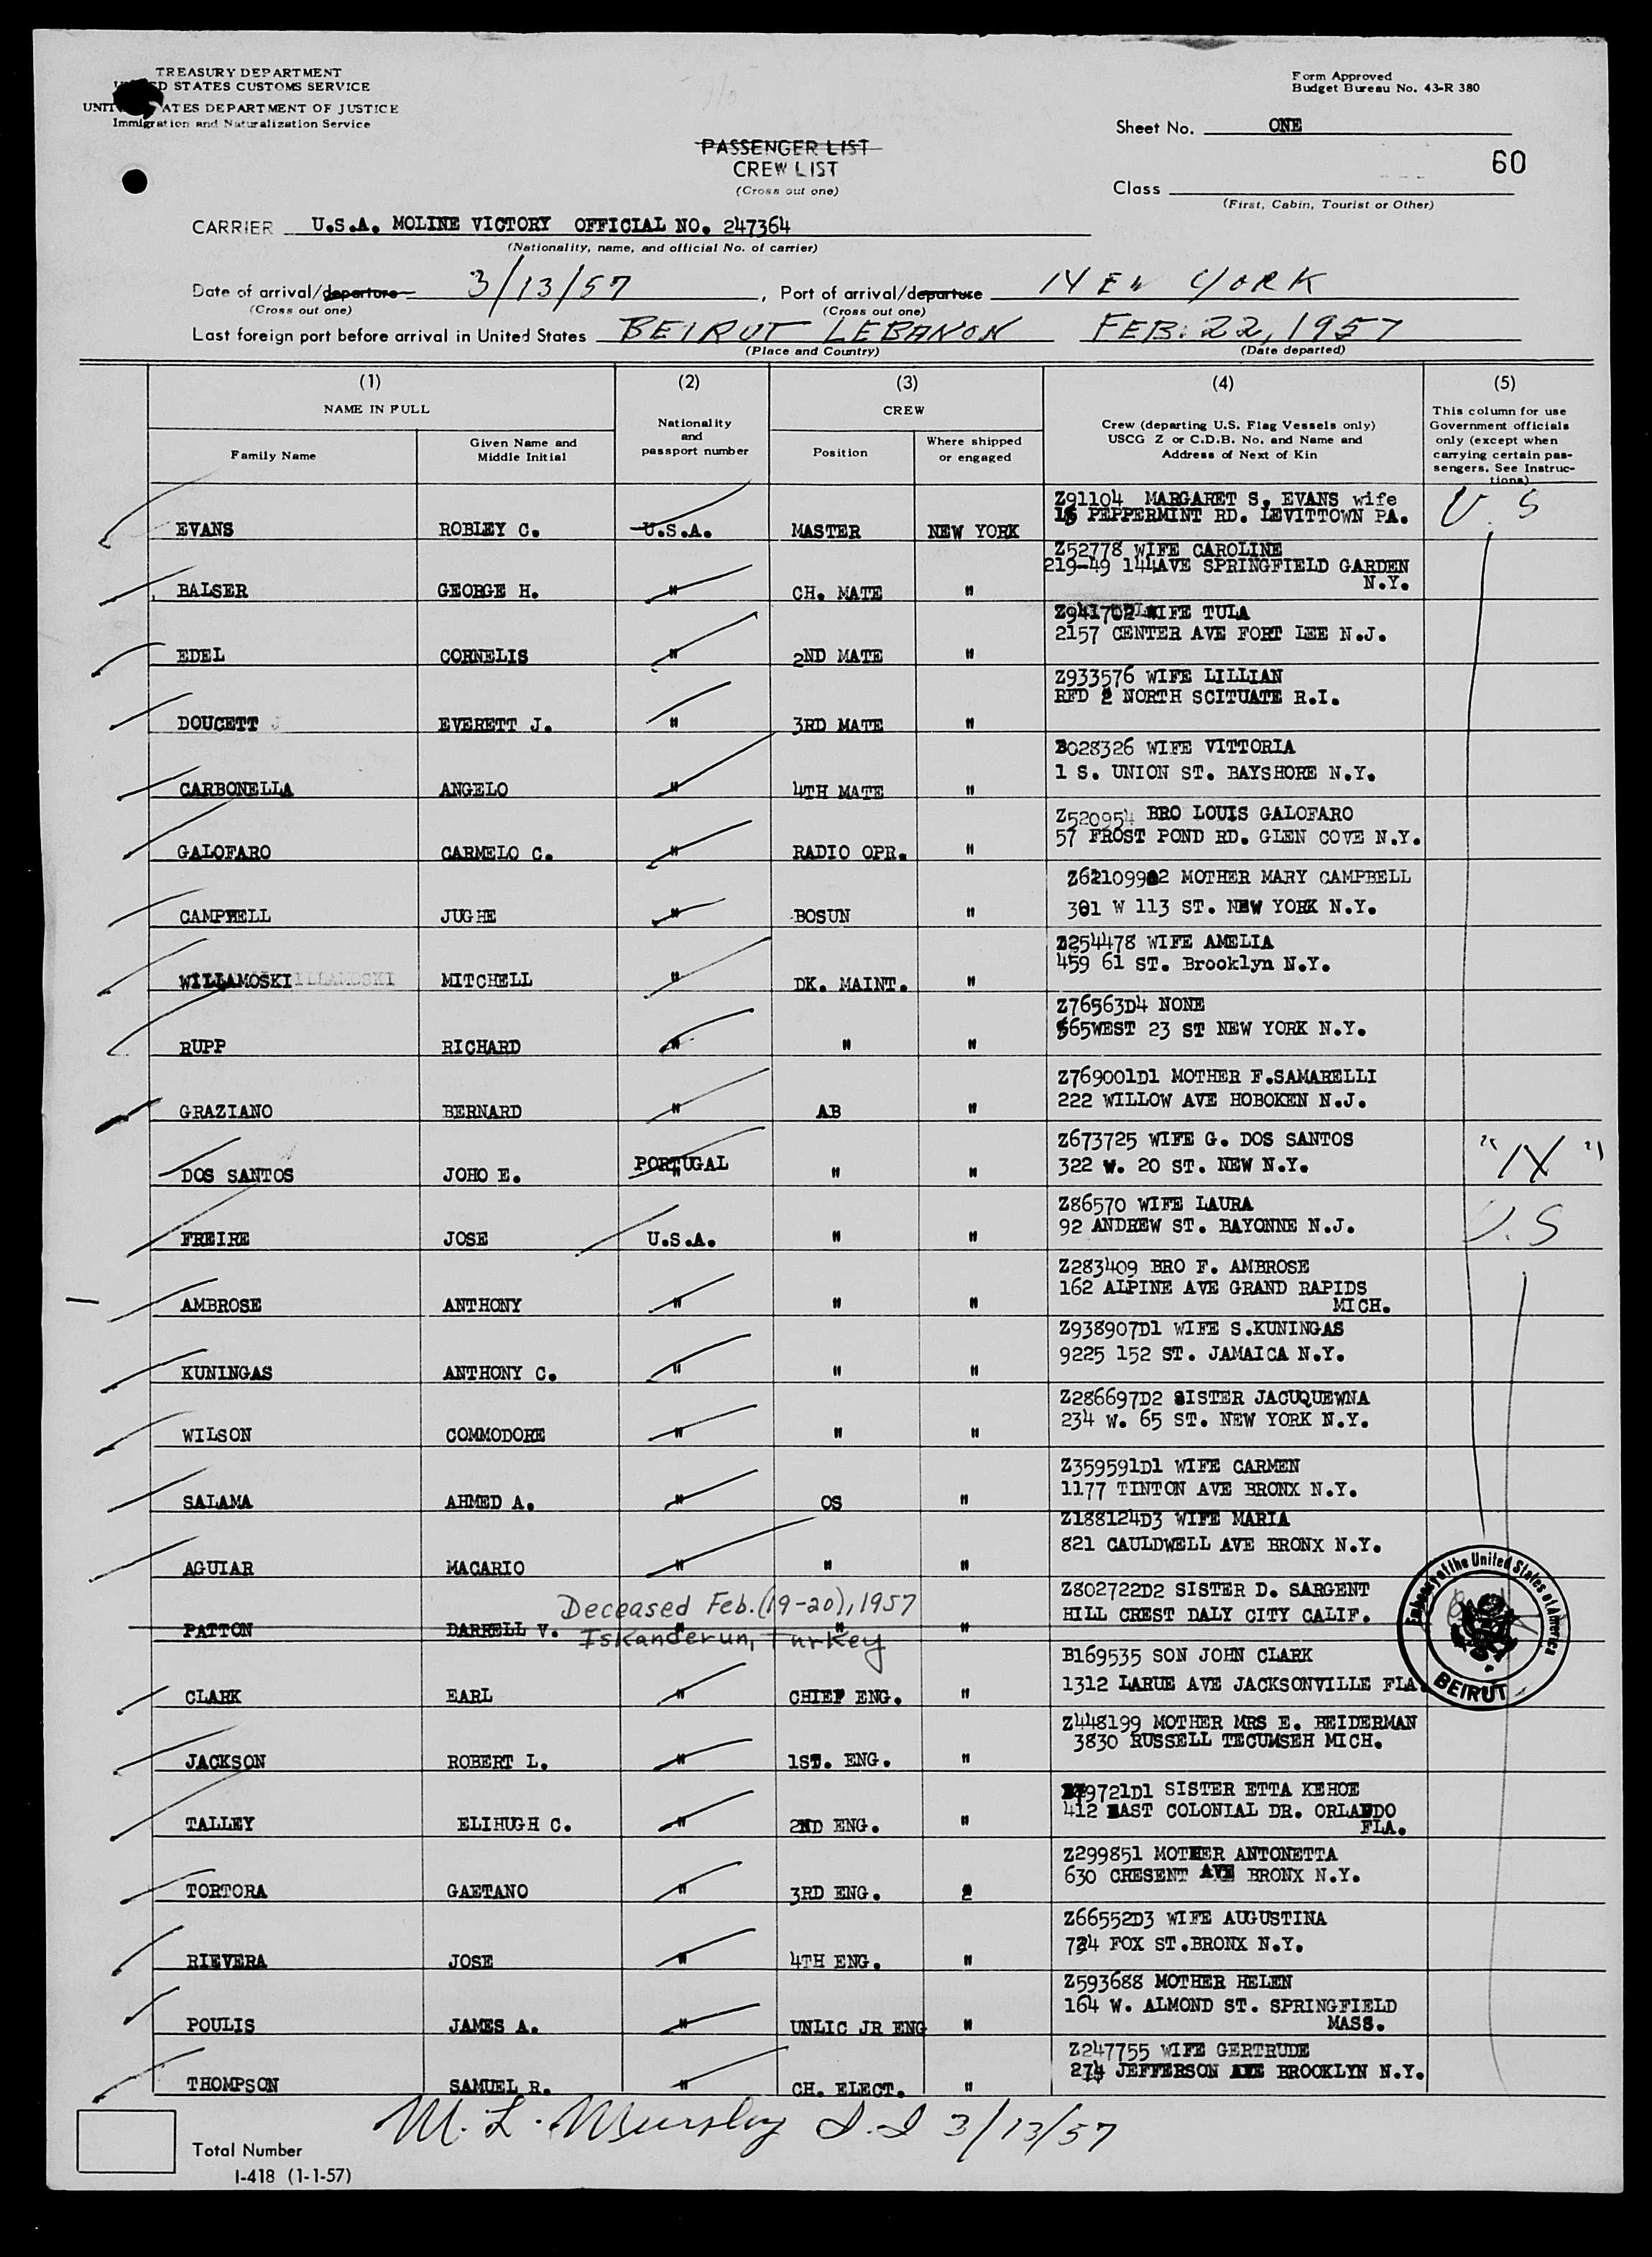 TREASURY DEPARTMENT
D STATES CUSTOMS SERVICE
UNIT ATES DEPARTMENT OF JUSTICE
Immigration and Naturalization Service
Form Approved
Budget Bureau No. 43-R 380
Sheet No. ONE
PASSENGER LIST
CREW LIST
(Cross out one)
60
Class
(First, Cabin, Tourist or Other)
CARRIER U.S.A. MOLINE VICTORY OFFICIAL NO. 247364
(Nationality, name, and official No. of carrier)
Date of arrival/departure 3/13/57, Port of arrival/departure NEW YORK
(Cross out one) (Cross out one)
Last foreign port before arrival in United States BEIRUT LEBANON FEB. 22, 1957
(Place and Country) (Date departed)
(1) (2) (3) (4) (5)
NAME IN FULL
Family Name
Given Name and
Middle Initial
Nationality
and
passport number
CREW
Position
Where shipped
or engaged
Crew (departing U.S. Flag Vessels only)
USCG Z or C.D.B. No. and Name and
Address of Next of Kin
This column for use
Government officials
only (except when
carrying certain pas-
sengers. See Instruc-
tions)
Z91104 MARGARET S. EVANS wife
EVANS ROBLEY C. U.S.A. MASTER NEW YORK PEPPERMINT RD. LEVITTOWN PA. U.S
Z52778 WIFE CAROLINE
219-49 144AVE SPRINGFIELD GARDEN
BALSER GEORGE H. " CH. MATE " N.Y.
WIFE TULA
2157 CENTER AVE FORT LEE N.J.
EDEL CORNELIS " 2ND MATE "
Z933576 WIFE LILLIAN
RFD 2 NORTH SCITUATE R.I.
DOUCETT EVERETT J. " 3RD MATE "
B028326 WIFE VITTORIA
1 S. UNION ST. BAYSHORE N.Y.
CARBONELLA ANGELO " 4TH MATE "
Z520954 BRO LOUIS GALOFARO
57 FROST POND RD. GLEN COVE N.Y.
GALOFARO CARMELO C. " RADIO OPR. "
MOTHER MARY CAMPBELL
CAMPBELL JUGHE " BOSUN " 301 W 113 ST. NEW YORK N.Y.
Z254478 WIFE AMELIA
459 61 ST. Brooklyn N.Y.
WILLAMOSKI MITCHELL " DK. MAINT. "
Z76563D4 NONE
565WEST 23 ST NEW YORK N.Y.
RUPP RICHARD " " "
Z769001D1 MOTHER F.SAMARELLI
222 WILLOW AVE HOBOKEN N.J.
GRAZIANO BERNARD " AB "
Z673725 WIFE G. DOS SANTOS
PORTUGAL 322 W. 20 ST. NEW N.Y. "IX"
DOS SANTOS JOHO E. " " "
Z86570 WIFE LAURA
92 ANDREW ST. BAYONNE N.J. U.S
FREIRE JOSE U.S.A. " "
Z283409 BRO F. AMBROSE
162 ALPINE AVE GRAND RAPIDS
AMBROSE ANTHONY " " " MICH.
Z938907D1 WIFE S.KUNINGAS
9225 152 ST. JAMAICA N.Y.
KUNINGAS ANTHONY C. " " "
Z286697D2 SISTER JACUQUEWNA
234 W. 65 ST. NEW YORK N.Y.
WILSON COMMODORE " " "
Z359591D1 WIFE CARMEN
1177 TINTON AVE BRONX N.Y.
SALAMA AHMED A. " OS "
Z188124D3 WIFE MARIA
821 CAULDWELL AVE BRONX N.Y.
AGUIAR MACARIO " " "
Z802722D2 SISTER D. SARGENT
Deceased Feb. (19-20), 1957 HILL CREST DALY CITY CALIF.
PATTON DARRELL V. " " "
Iskanderun, Turkey
Embassy of the United States of America
BEIRUT
B169535 SON JOHN CLARK
1312 LARUE AVE JACKSONVILLE FLA.
CLARK EARL " CHIEF ENG. "
Z448199 MOTHER MRS E. BEIDERMAN
3830 RUSSELL TECUMSEH MICH.
JACKSON ROBERT L. " 1ST. ENG. "
9721D1 SISTER ETTA KEHOE
412 EAST COLONIAL DR. ORLANDO
TALLEY ELIHUGH C. " 2ND ENG. " FLA.
Z299851 MOTHER ANTONETTA
630 CRESENT AVE BRONX N.Y.
TORTORA GAETANO " 3RD ENG. 2
Z66552D3 WIFE AUGUSTINA
724 FOX ST.BRONX N.Y.
RIEVERA JOSE " 4TH ENG. "
Z593688 MOTHER HELEN
164 W. ALMOND ST. SPRINGFIELD
POULIS JAMES A. " UNLIC JR ENG " MASS.
Z247755 WIFE GERTRUDE
274 JEFFERSON AVE BROOKLYN N.Y.
THOMPSON SAMUEL R. " CH. ELECT. "
M. L. 3/13/57
Total Number
I-418 (1-1-57)